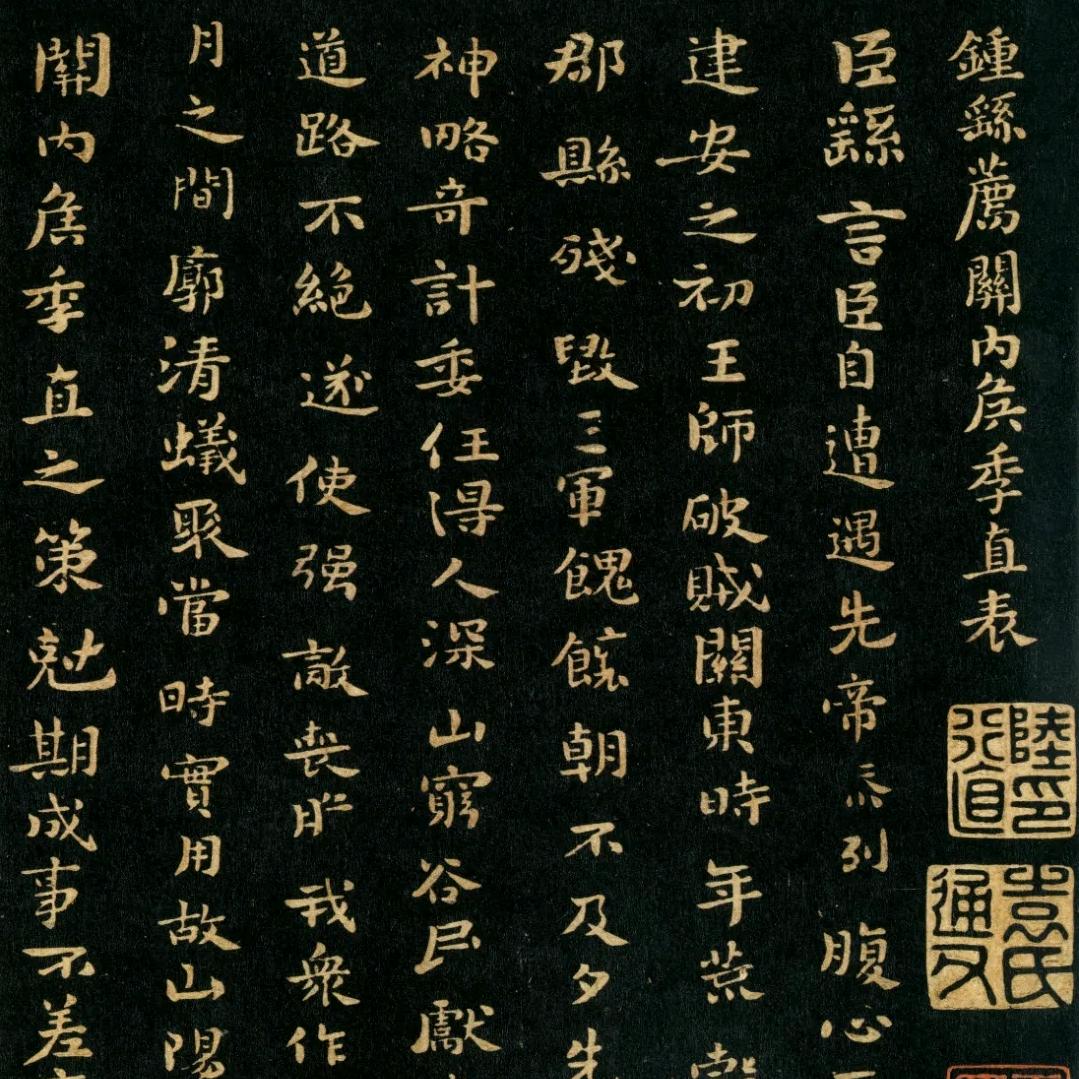 鍾繇薦關內侯季直表
陸印行直
臣繇言臣自遭遇先帝忝列腹心
建安之初王師破賊關東時年荒
郡縣殘毀三軍餽饟朝不及夕先
神略奇計委任得人深山窮谷民獻
道路不絕遂使强敵喪膽我衆作
月之間廓清蟻聚當時實用故山陽
關內侯季直之策尅期成事不差